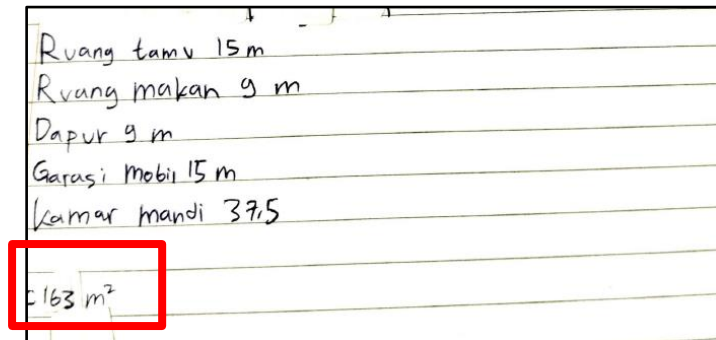 Ruang tamu 15 m
Ruang makan 9 m
Dapur 9 m
Garasi mobil 15 m
Kamar mandi 37,5
= 163 m²